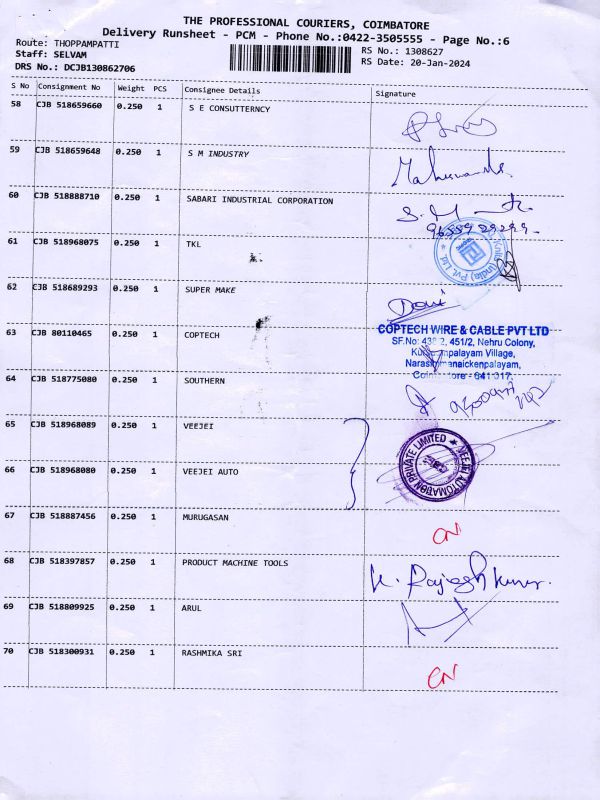 THE PROFESSIONAL COURIERS, COIMBATORE
Delivery Runsheet - PCM - Phone No.:0422-3505555 - Page No.:6
Route: THOPPAMPATTI
RS No.: 1308627
Staff: SELVAM
RS Date: 20-Jan-2024
DRS No.: DCJB130862706
S No Consignment No Weight PCS Consignee Details Signature
58 CJB 518659660 0.250 1 S E CONSUTTERNCY
59 CJB 518659648 0.250 1 S M INDUSTRY
60 CJB 518888710 0.250 1 SABARI INDUSTRIAL CORPORATION
61 CJB 518968075 0.250 1 TKL
(India) Pvt. Ltd.
62 CJB 518689293 0.250 1 SUPER MAKE
63 CJB 80110465 0.250 1 COPTECH
COPTECH WIRE & CABLE PVT LTD
451/2, Nehru Colony,
Village,
641 017.
64 CJB 518775080 0.250 1 SOUTHERN
65 CJB 518968089 0.250 1 VEEJEI
66 CJB 518968080 0.250 1 VEEJEI AUTO
VEEJEI AUTOMATION PRIVATE LIMITED
67 CJB 518887456 0.250 1 MURUGASAN
CN
68 CJB 518397857 0.250 1 PRODUCT MACHINE TOOLS
K. Rajesh Kumar.
69 CJB 518809925 0.250 1 ARUL
70 CJB 518300931 0.250 1 RASHMIKA SRI
CN